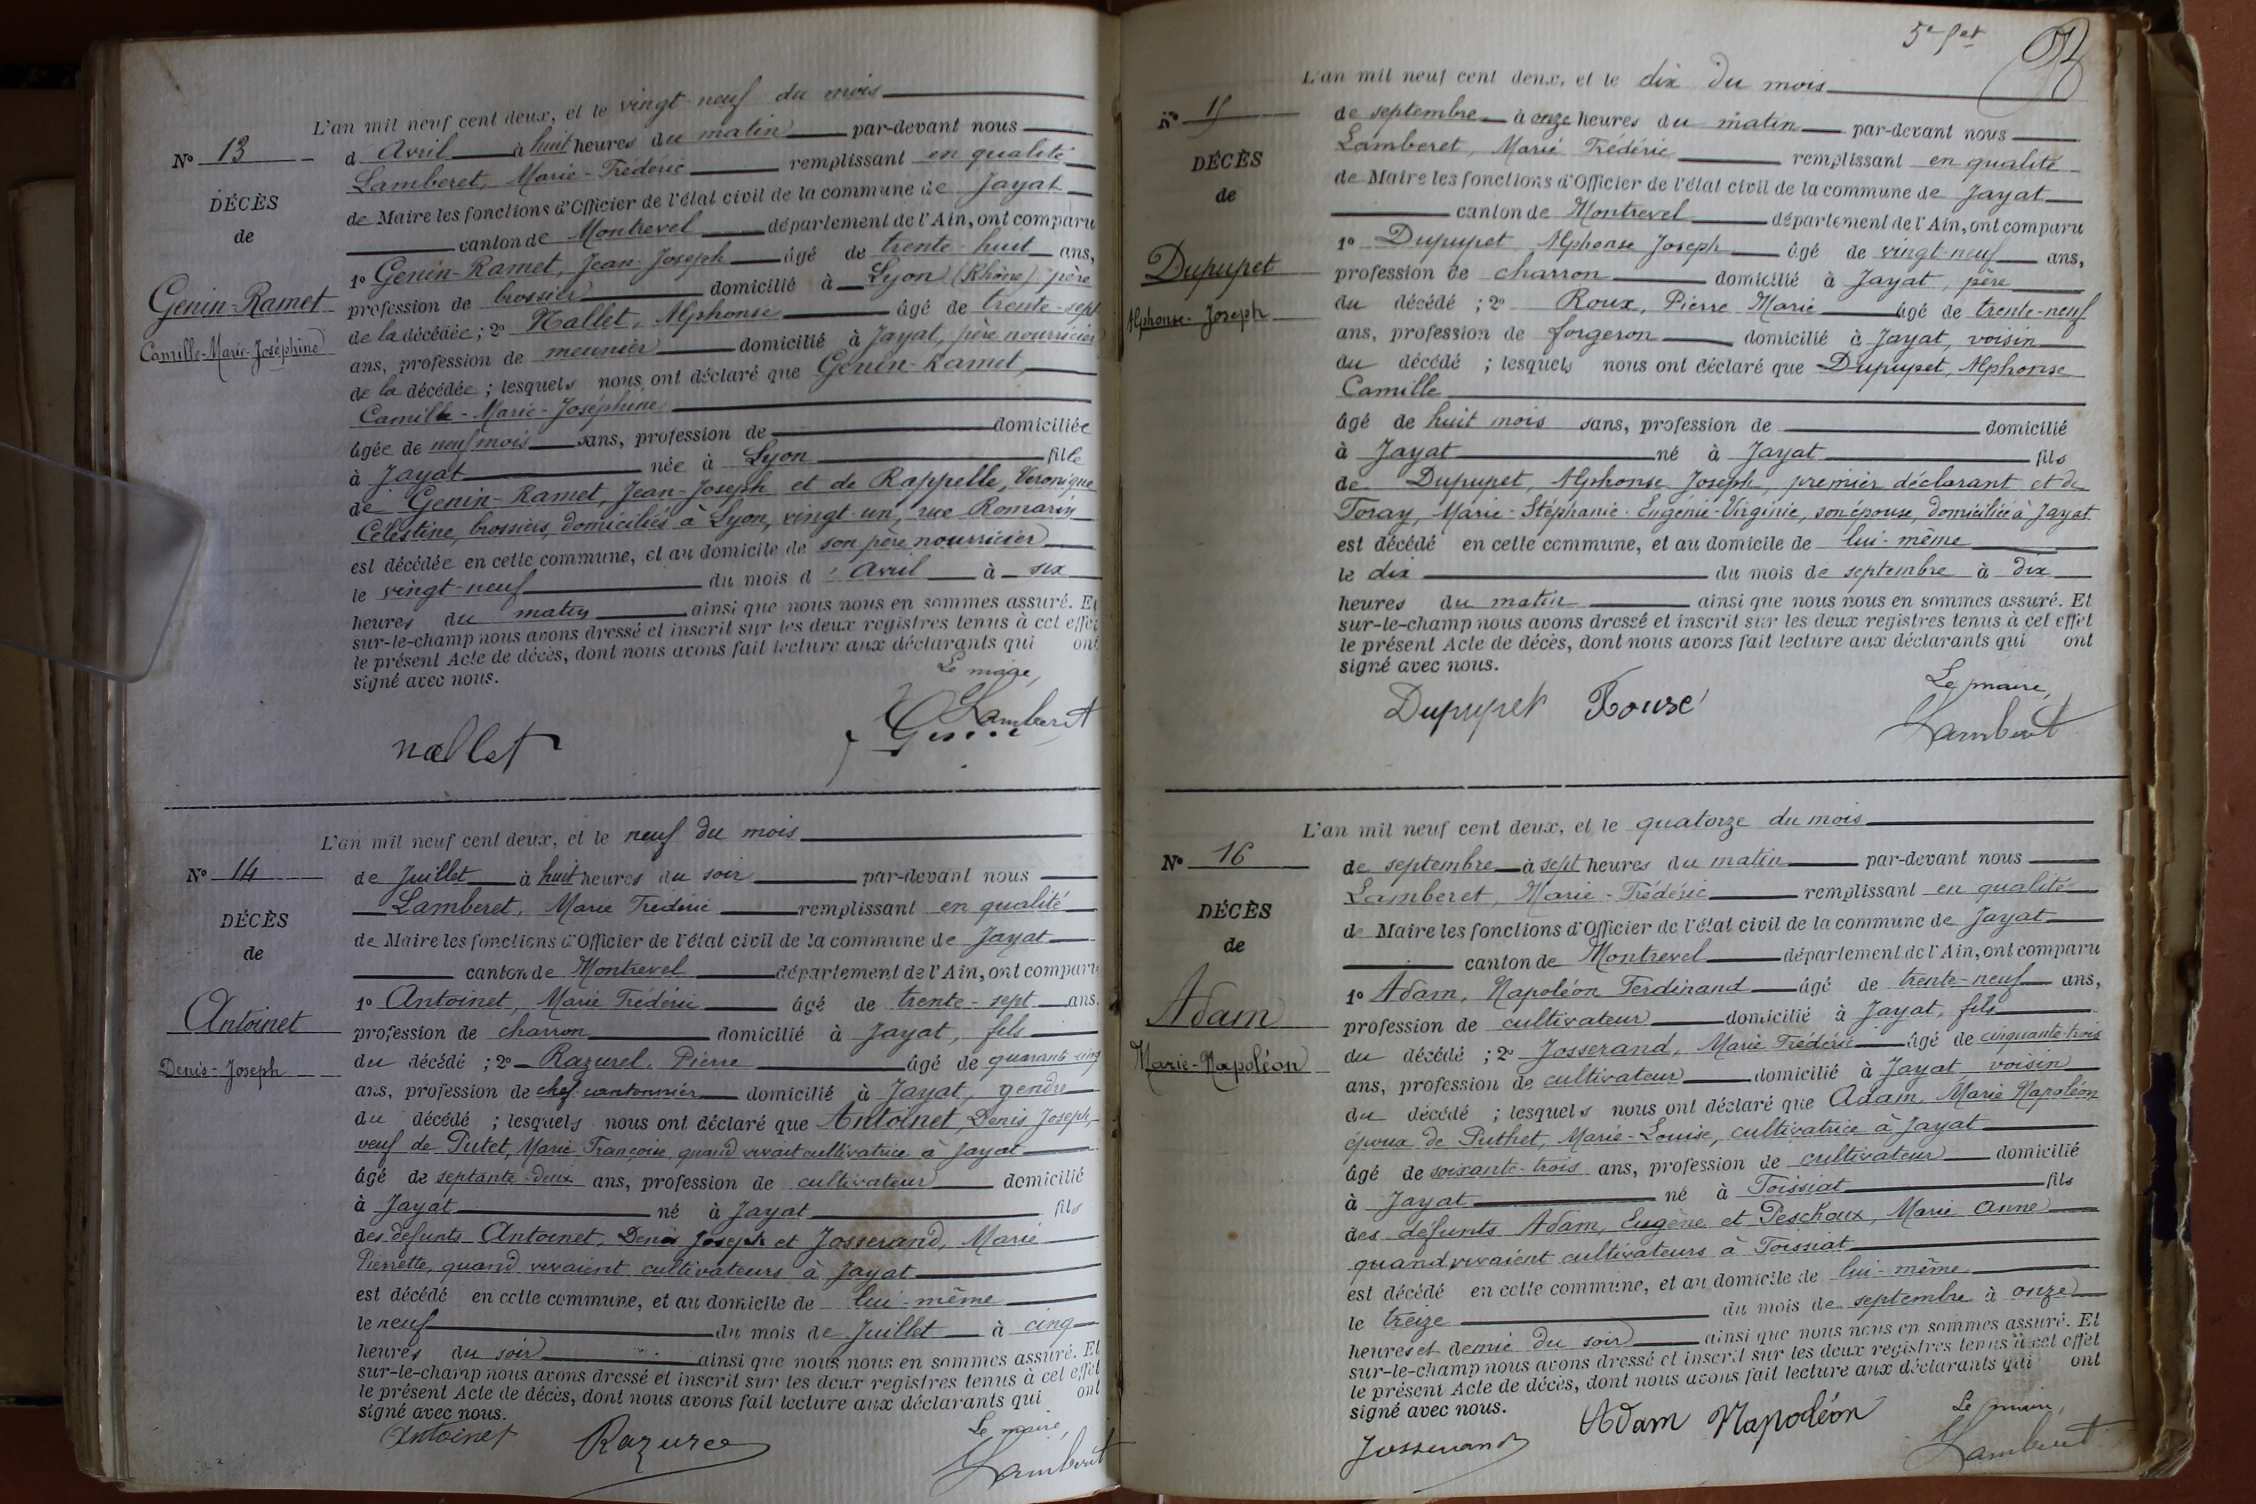 L'an mil neuf cent deux, et le vingt-neuf du mois
N° 13
d'Avril à huit heures du matin par-devant nous
Lamberet, Marie-Frédéric remplissant en qualité
DÉCÈS
de Maire les fonctions d'Officier de l'état civil de la commune de Jayat
de
canton de Montrevel département de l'Ain, ont comparu
1° Genin-Ramet, Jean-Joseph âgé de trente-huit ans,
Genin-Ramet
profession de brossier domicilié à Lyon (Rhône) père
Camille-Marie-Joséphine
de la décédée ; 2° Nallet, Alphonse âgé de trente-sept
ans, profession de meunier domicilié à Jayat, père nourricier
de la décédée ; lesquels nous ont déclaré que Genin-Ramet
Camille-Marie-Joséphine
âgée de neuf mois sans, profession de domiciliée
à Jayat née à Lyon fille
de Genin-Ramet, Jean-Joseph et de Rappelle, Veronique
Célestine, brossiers, domiciliés à Lyon, vingt-un, rue Romarin
est décédée en cette commune, et au domicile de son père nourricier
le vingt-neuf du mois d'Avril à six
heures du matin ainsi que nous nous en sommes assuré. Et
sur-le-champ nous avons dressé et inscrit sur les deux registres tenus à cet effet
le présent Acte de décès, dont nous avons fait lecture aux déclarants qui ont
signé avec nous.
Le maire,
Lamberet
nallet Genin
L'an mil neuf cent deux, et le neuf du mois
N° 14
de Juillet à huit heures du soir par-devant nous
Lamberet, Marie Frédéric remplissant en qualité
DÉCÈS
de Maire les fonctions d'Officier de l'état civil de la commune de Jayat
de
canton de Montrevel département de l'Ain, ont comparu
1° Antoinet, Marie Frédéric âgé de trente-sept ans,
Antoinet
profession de charron domicilié à Jayat, fils
du décédé ; 2° Razurel, Pierre âgé de quarante-cinq
Denis-Joseph
ans, profession de chef-cantonnier domicilié à Jayat, gendre
du décédé ; lesquels nous ont déclaré que Antoinet, Denis Joseph,
veuf de Putet, Marie Françoise, quand vivait cultivatrice à Jayat
âgé de septante-deux ans, profession de cultivateur domicilié
à Jayat né à Jayat fils
des defunts Antoinet, Denis Joseph et Josserand, Marie
Pierrette, quand vivaient cultivateurs à Jayat
est décédé en cette commune, et au domicile de lui-même
le neuf du mois de Juillet à cinq
heures du soir ainsi que nous nous en sommes assuré. Et
sur-le-champ nous avons dressé et inscrit sur les deux registres tenus à cet effet
le présent Acte de décès, dont nous avons fait lecture aux déclarants qui ont
signé avec nous.
Le maire,
Antoinet Razurel Lamberet
5e fet
L'an mil neuf cent deux, et le dix du mois
N° 15
de septembre à onze heures du matin par-devant nous
Lamberet, Marie Frédéric remplissant en qualité
DÉCÈS
de Maire les fonctions d'Officier de l'état civil de la commune de Jayat
de
canton de Montrevel département de l'Ain, ont comparu
1° Dupupet, Alphonse Joseph âgé de vingt-neuf ans,
Dupupet
profession de charron domicilié à Jayat, père
du décédé ; 2° Roux, Pierre Marie âgé de trente-neuf
Alphonse-Joseph
ans, profession de forgeron domicilié à Jayat, voisin
du décédé ; lesquels nous ont déclaré que Dupupet, Alphonse
Camille
âgé de huit mois sans, profession de domicilié
à Jayat né à Jayat fils
de Dupupet, Alphonse Joseph, premier déclarant et de
Foray, Marie-Stéphanie-Engénie-Virginie, son épouse, domiciliée à Jayat
est décédé en cette commune, et au domicile de lui-même
le dix du mois de septembre à dix
heures du matin ainsi que nous nous en sommes assuré. Et
sur-le-champ nous avons dressé et inscrit sur les deux registres tenus à cet effet
le présent Acte de décès, dont nous avons fait lecture aux déclarants qui ont
signé avec nous.
Le maire,
Dupupet Lamberet
L'an mil neuf cent deux, et le quatorze du mois
N° 16
de septembre à sept heures du matin par-devant nous
Lamberet, Marie-Frédéric remplissant en qualité
DÉCÈS
de Maire les fonctions d'Officier de l'état civil de la commune de Jayat
de
canton de Montrevel département de l'Ain, ont comparu
1° Adam, Napoléon Ferdinand âgé de trente-neuf ans,
Adam
profession de cultivateur domicilié à Jayat, fils
du décédé ; 2° Josserand, Marie Frédéric âgé de cinquante-trois
Marie-Napoléon
ans, profession de cultivateur domicilié à Jayat voisin
du décédé ; lesquels nous ont déclaré que Adam, Marie Napoléon
époux de Puthet, Marie-Louise, cultivatrice à Jayat
âgé de soixante-trois ans, profession de cultivateur domicilié
à Jayat né à Foissiat fils
des défunts Adam, Eugène et Peschoux, Marie Anne
quand vivaient cultivateurs à Foissiat
est décédé en cette commune, et au domicile de lui-même
le treize du mois de septembre à onze
heures et demie du soir ainsi que nous nous en sommes assuré. Et
sur-le-champ nous avons dressé et inscrit sur les deux registres tenus à cet effet
le présent Acte de décès, dont nous avons fait lecture aux déclarants qui ont
signé avec nous.
Le maire,
Josserand Adam Napoléon Lamberet